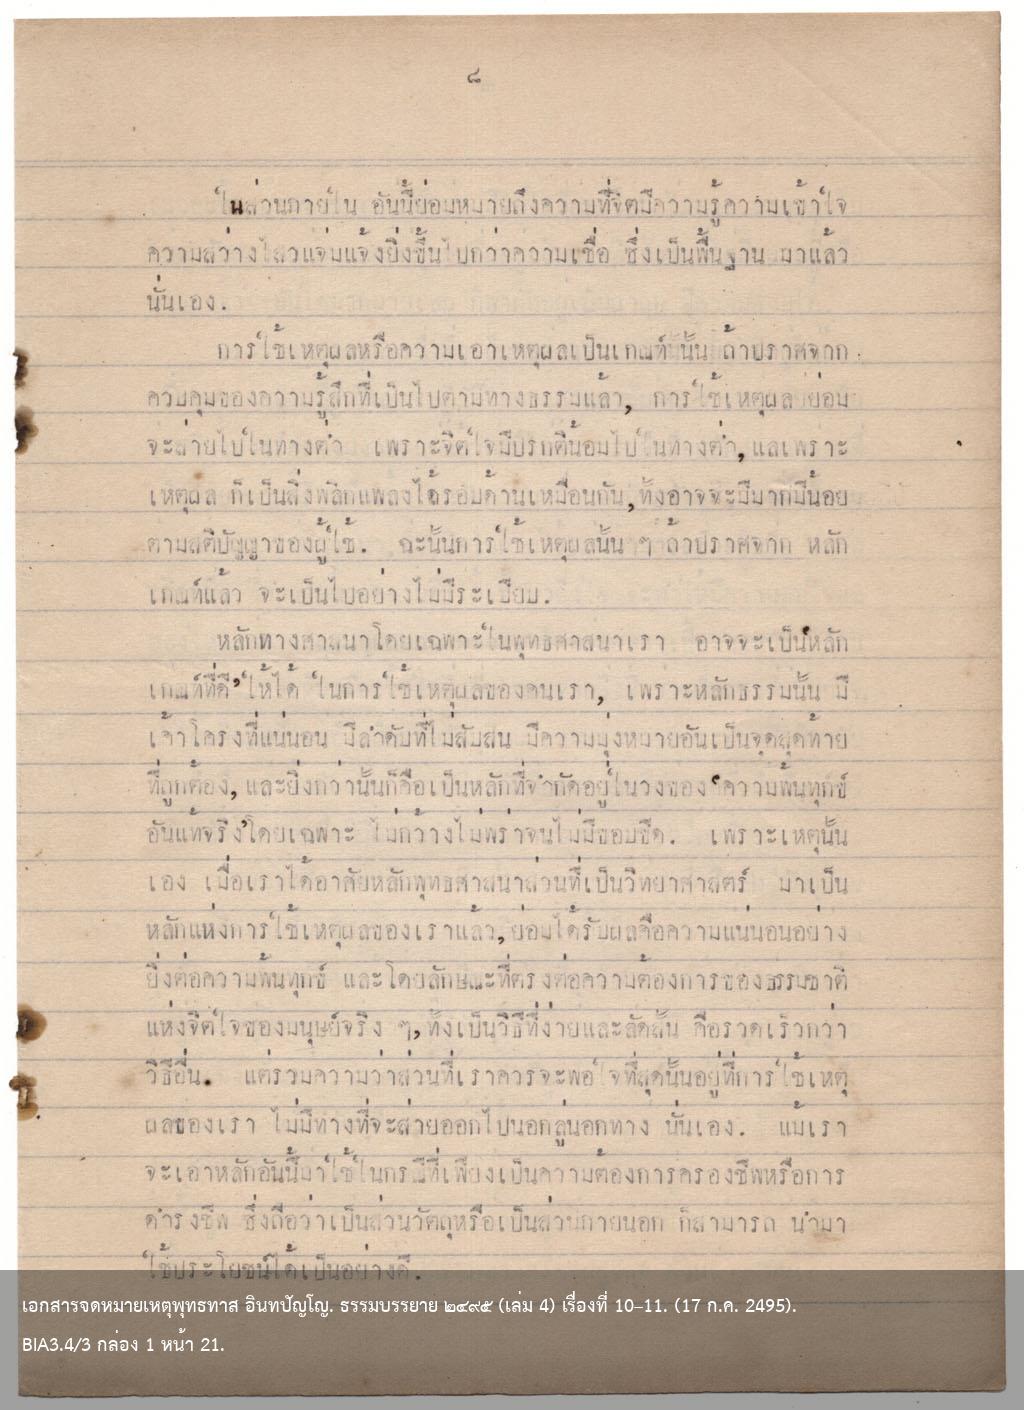 ๘
ในส่วนภายใน อันนี้ย่อมหมายถึงความที่จิตมีความรู้ความเข้าใจ
ความสว่างไสวแจ่มแจ้งยิ่งขึ้นไปกว่าความเชื่อ ซึ่งเป็นพื้นฐาน มาแล้ว
นั่นเอง.
การใช้เหตุผลหรือความเอาเหตุผลเป็นเกณฑ์นั้น ถ้าปราศจาก
ควบคุมของความรู้สึกที่เป็นไปตามทางธรรมแล้ว, การใช้เหตุผล ย่อม
จะส่ายไปในทางต่ำ เพราะจิตใจมีปรกติน้อมไปในทางต่ำ, แลเพราะ
เหตุผล ก็เป็นสิ่งพลิกแพลงได้รอบด้านเหมือนกัน, ทั้งอาจจะมีมากมีน้อย
ตามสติปัญญาของผู้ใช้. ฉะนั้นการใช้เหตุผลนั้น ๆ ถ้าปราศจาก หลัก
เกณฑ์แล้ว จะเป็นไปอย่างไม่มีระเบียบ.
หลักทางศาสนาโดยเฉพาะในพุทธศาสนาเรา อาจจะเป็น'หลัก
เกณฑ์ที่ดี'ให้ได้ ในการใช้เหตุผลของคนเรา, เพราะหลักธรรมนั้น มี
เค้าโครงที่แน่นอน มีลำดับที่ไม่สับสน มีความมุ่งหมายอันเป็นจุดสุดท้าย
ที่ถูกต้อง, และยิ่งกว่านั้นก็คือเป็นหลักที่จำกัดอยู่ในวงของ 'ความพ้นทุกข์
อันแท้จริง'โดยเฉพาะ ไม่กว้างไม่พร่าจนไม่มีขอบขีด. เพราะเหตุนั้น
เอง เมื่อเราได้อาศัยหลักพุทธศาสนาส่วนที่เป็นวิทยาศาสตร์ มาเป็น
หลักแห่งการใช้เหตุผลของเราแล้ว, ย่อมได้รับผลคือความแน่นอนอย่าง
ยิ่งต่อความพ้นทุกข์ และโดยลักษณะที่ตรงต่อความต้องการของธรรมชาติ
แห่งจิตใจของมนุษย์จริง ๆ, ทั้งเป็นวิธีที่ง่ายและลัดสั้น คือรวดเร็วกว่า
วิธีอื่น. แต่รวมความว่าส่วนที่เราควรจะพอใจที่สุดนั้นอยู่ที่การใช้เหตุ
ผลของเรา ไม่มีทางที่จะส่ายออกไปนอกลู่นอกทาง นั่นเอง. แม้เรา
จะเอาหลักอันนี้มาใช้ในกรณีที่เพียงเป็นความต้องการครองชีพหรือการ
ดำรงชีพ ซึ่งถือว่าเป็นส่วนวัตถุหรือเป็นส่วนภายนอก ก็สามารถ นำมา
ใช้ประโยชน์ได้เป็นอย่างดี.
เอกสารจดหมายเหตุพุทธทาส อินทปัญโญ. ธรรมบรรยาย ๒๔๙๕ (เล่ม 4) เรื่องที่ 10–11. (17 ก.ค. 2495).
BIA3.4/3 กล่อง 1 หน้า 21.